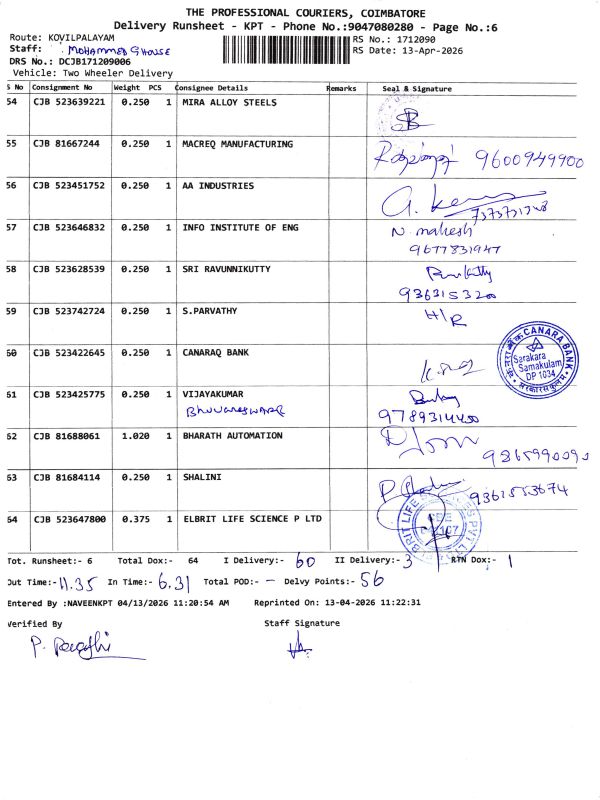 THE PROFESSIONAL COURIERS, COIMBATORE
Delivery Runsheet - KPT - Phone No.:9047080280 - Page No.:6
Route: KOVILPALAYAM RS No.: 1712090
Staff: MOHAMMED GHOUSE RS Date: 13-Apr-2026
DRS No.: DCJB171209006
Vehicle: Two Wheeler Delivery
S No Consignment No Weight PCS Consignee Details Remarks Seal & Signature
54 CJB 523639221 0.250 1 MIRA ALLOY STEELS
55 CJB 81667244 0.250 1 MACREQ MANUFACTURING 9600949900
56 CJB 523451752 0.250 1 AA INDUSTRIES
57 CJB 523646832 0.250 1 INFO INSTITUTE OF ENG N. mahesh
9677831947
58 CJB 523628539 0.250 1 SRI RAVUNNIKUTTY
9363153200
59 CJB 523742724 0.250 1 S.PARVATHY H/R
60 CJB 523422645 0.250 1 CANARAQ BANK
CANARA BANK
Sarakara
Samakulam
DP 1034
61 CJB 523425775 0.250 1 VIJAYAKUMAR
BHUVANESWARI 9789314400
62 CJB 81688061 1.020 1 BHARATH AUTOMATION
63 CJB 81684114 0.250 1 SHALINI 9361553674
64 CJB 523647800 0.375 1 ELBRIT LIFE SCIENCE P LTD
Tot. Runsheet:- 6 Total Dox:- 64 I Delivery:- 60 II Delivery:- 3 RTN Dox:- 1
Out Time:- 11.35 In Time:- 6.31 Total POD:- - Delvy Points:- 56
Entered By :NAVEENKPT 04/13/2026 11:20:54 AM Reprinted On: 13-04-2026 11:22:31
Verified By Staff Signature